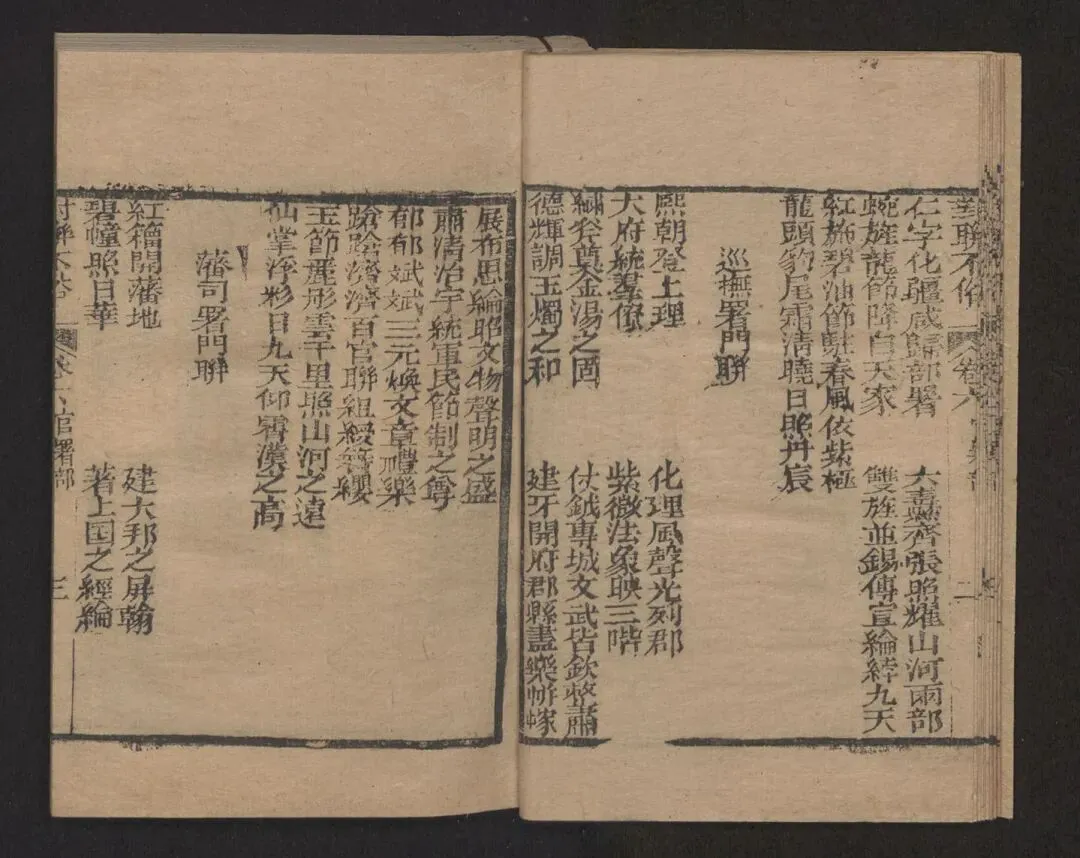 對聯不俗 卷六 官署部 二
仁字化疆咸歸部署 大纛齊張照耀山河兩部
蜺旌龍節降自天家 雙旌並錫傳宣綸綍九天
紅旆碧油節駐春風依紫極
龍頭豹尾霜清曉日照丹宸
巡撫署門聯
熙朝登上理 化理風聲光列郡
大府統羣僚 紫微法象映三階
奠金湯之固 仗鉞專城文武皆欽整肅
德輝調玉燭之和 建牙開府郡縣盡樂帡幪
展布思綸昭文物聲明之盛
肅清治宇統軍民節制之尊
郁郁斌斌三元煥文章禮樂
蹌蹌濟濟百官聯組綬簪纓
玉節塵形雲千里照山河之遠
仙掌浮彩日九天仰霄漢之高
藩司署門聯
紅籕開藩地 建大邦之屏翰
碧幢照日華 著上国之經綸
對聯不俗 卷六 官署部 三